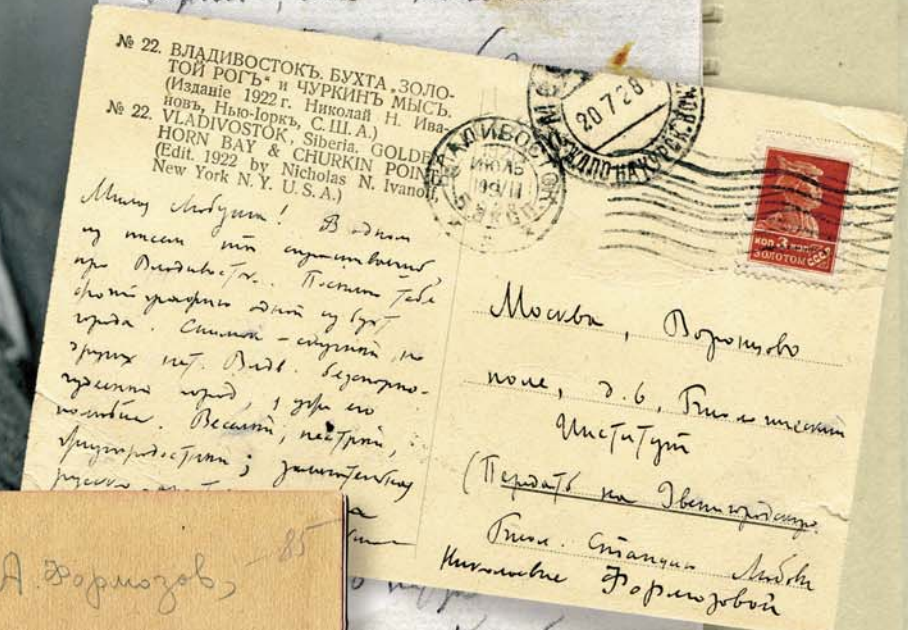 № 22. ВЛАДИВОСТОКЪ. БУХТА „ЗОЛО-
ТОЙ РОГЪ“ и ЧУРКИНЪ МЫСЪ.
(Изданіе 1922 г. Николай Н. Ива-
новъ, Нью-Іоркъ, С. Ш. А.)
№ 22. VLADIVOSTOK, Siberia. GOLDEN
HORN BAY & CHURKIN POINT
(Edit. 1922 by Nicholas N. Ivanoff
New York N. Y. U. S. A.)
Милая Любушка! В одном
из писем ты спрашиваешь
про Владивосток. Посылаю тебе
фотографию одной из бухт
города. Снимок – скучный, но
других нет. Влад. безспорно-
чудесный город, я уже его
полюбил. Веселый, пестрый,
русско
ВЛАДИВОСТОК
ИЮЛЬ
20 7 28
КОП 3 КОП
ЗОЛОТОМ СССР
Москва, Воронцово
поле, д. 6, Биологический
Институт
(Передать на Звенигородскую
Биол. Станцию Любови
Николаевне Формозовой
А. Формозов,
-85